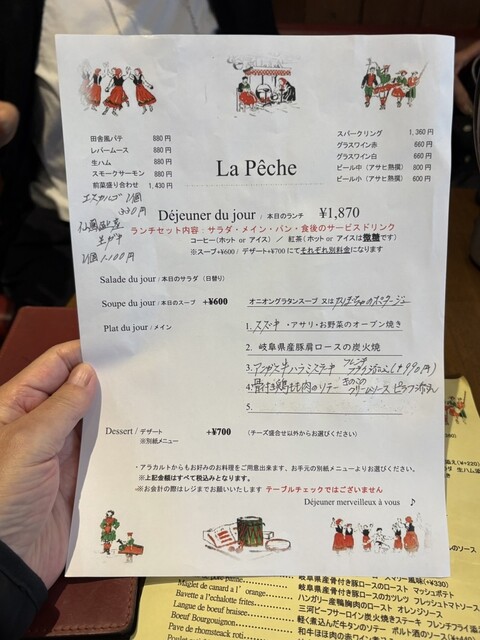 田舎風パテ 880円
レバームース 880円
生ハム 880円
スモークサーモン 880円
前菜盛り合わせ 1,430円
エスカルゴ 1個
330円
生ガキ
1個 1,100円
スパークリング 1,360円
グラスワイン赤 660円
グラスワイン白 660円
ビール中（アサヒ熟撰） 800円
ビール小（アサヒ熟撰） 600円
La Pêche
Déjeuner du jour / 本日のランチ ¥1,870
ランチセット内容：サラダ・メイン・パン・食後のサービスドリンク
コーヒー(ホット or アイス) ／ 紅茶(ホット or アイスは微糖です)
※スープ+¥600 / デザート+¥700 にてそれぞれ別料金になります
Salade du jour / 本日のサラダ（日替り）
Soupe du jour / 本日のスープ +¥600 オニオングラタンスープ 又は かぼちゃのポタージュ
Plat du jour / メイン
1. スズキ・アサリ・お野菜のオーブン焼き
2. 岐阜県産豚肩ロースの炭火焼
3. アンガス牛ハラミステーキ フレンチフライ添え(+990円)
4. 骨付き鶏もも肉のソテー きのこのクリームソース ピラフ添え
5.
Dessert / デザート +¥700 （チーズ盛合せ以外からお選びください）
※別紙メニュー
・アラカルトからもお好みのお料理をご用意出来ます、お手元の別紙メニューよりお選びください。
※上記金額はすべて税込みとなります。
※お会計の際はレジまでお願いいたします テーブルチェックではございません
Déjeuner merveilleux à vous ♪
のソース
風味(+¥330)
Magret de canard a l' orange
岐阜県産骨付き豚ロースのロースト マッシュポテト
Bavette a l'echalotte frites
岐阜県産骨付き豚ロースのカツレツ フレッシュトマトソース
Langue de boeuf braisee
ハンガリー産鴨胸肉のロースト オレンジソース
Boeuf Bourguignon
三河ビーフサーロイン炭火焼きステーキ フレンチフライ添
Pave de rhomsteack roti
軽く煮込んだ牛タンのソテー ポルト酒のソース